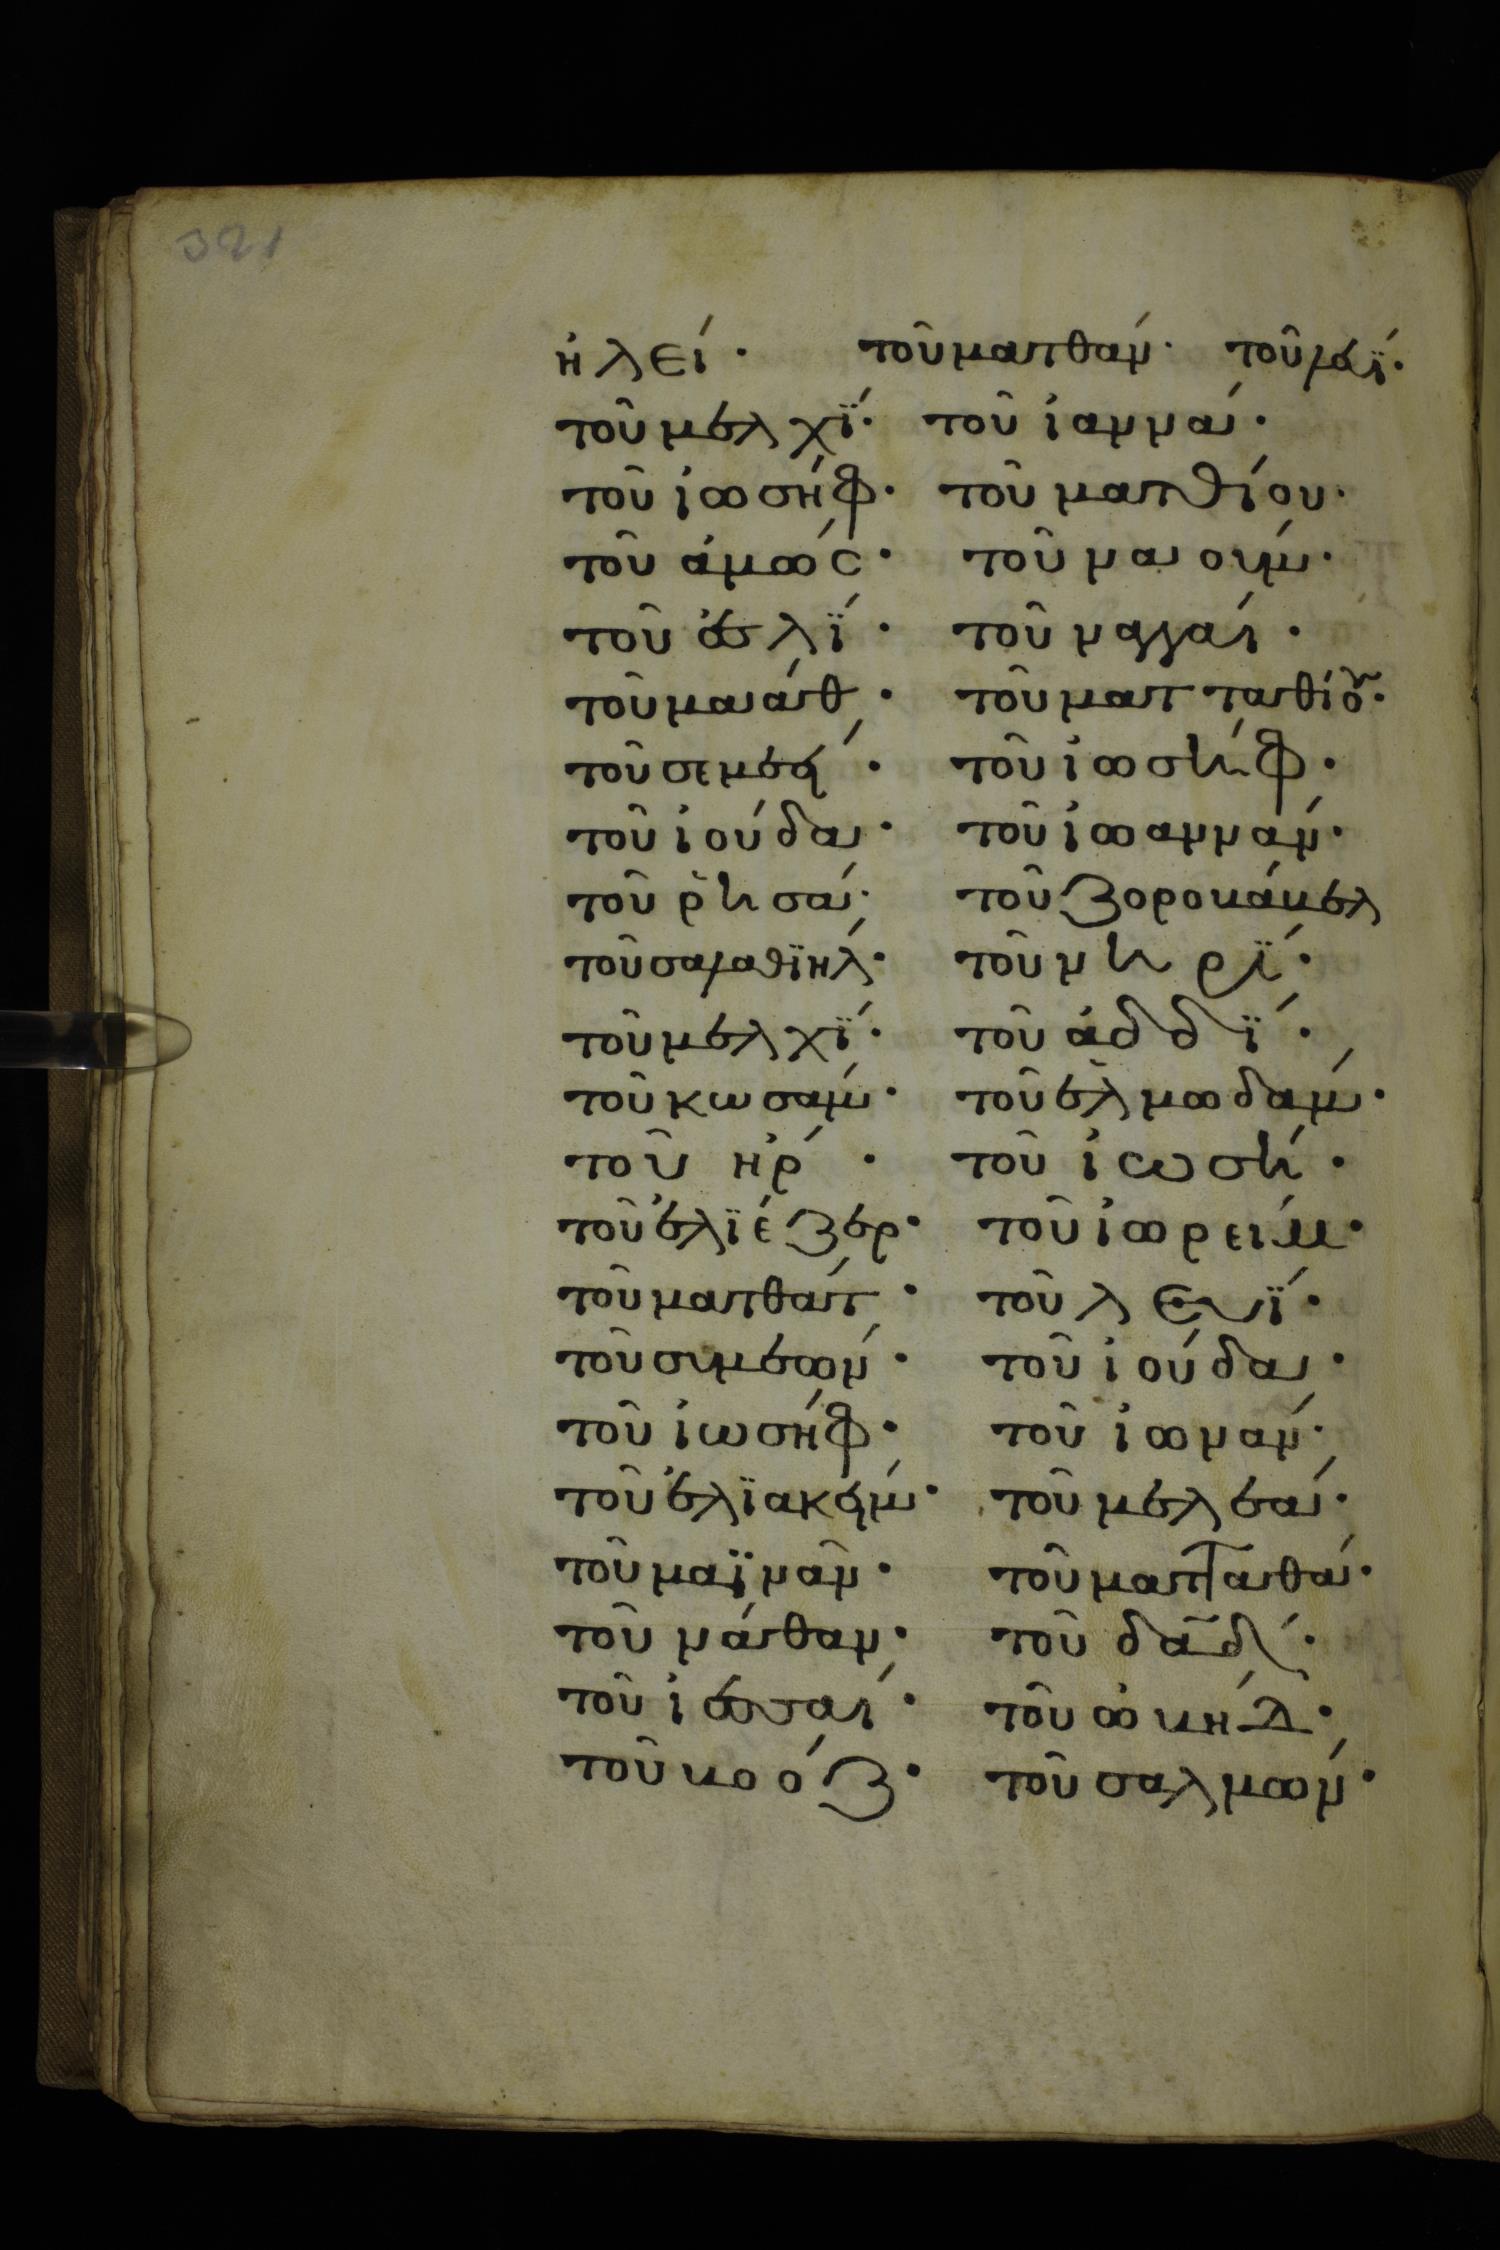 ἡλεί· τοῦ ματθάν· τοῦ λάϊ·
τοῦ μελχΐ· τοῦ ἰαννά·
τοῦ ἰωσήφ· τοῦ ματθίου·
τοῦ ἀμώς· τοῦ ναούμ·
τοῦ ἐσλΐ· τοῦ ναγγαί·
τοῦ μαάθ· τοῦ ματταθίου·
τοῦ σεμεί· τοῦ ἰωσήφ·
τοῦ ἰούδα· τοῦ ἰωαννάν·
τοῦ ῥησά· τοῦ ζοροβάβελ
τοῦ σαλαθϊήλ· τοῦ νηρΐ·
τοῦ μελχΐ· τοῦ ἀδδΐ·
τοῦ κωσάμ· τοῦ ἐλμωδάμ·
τοῦ ἠρ· τοῦ ἰωσή·
τοῦ ἐλϊέζερ· τοῦ ἰωρείμ·
τοῦ ματθάτ· τοῦ λευΐ·
τοῦ συμεών· τοῦ ἰούδα·
τοῦ ἰωσήφ· τοῦ ἰωνάν·
τοῦ ἐλϊακείμ· τοῦ μελεά·
τοῦ μαϊνᾶν· τοῦ ματταθά·
τοῦ νάθαν· τοῦ δαδ·
τοῦ ἰεσσαί· τοῦ ὠβήδ·
τοῦ βοόζ· τοῦ σαλμών·
321